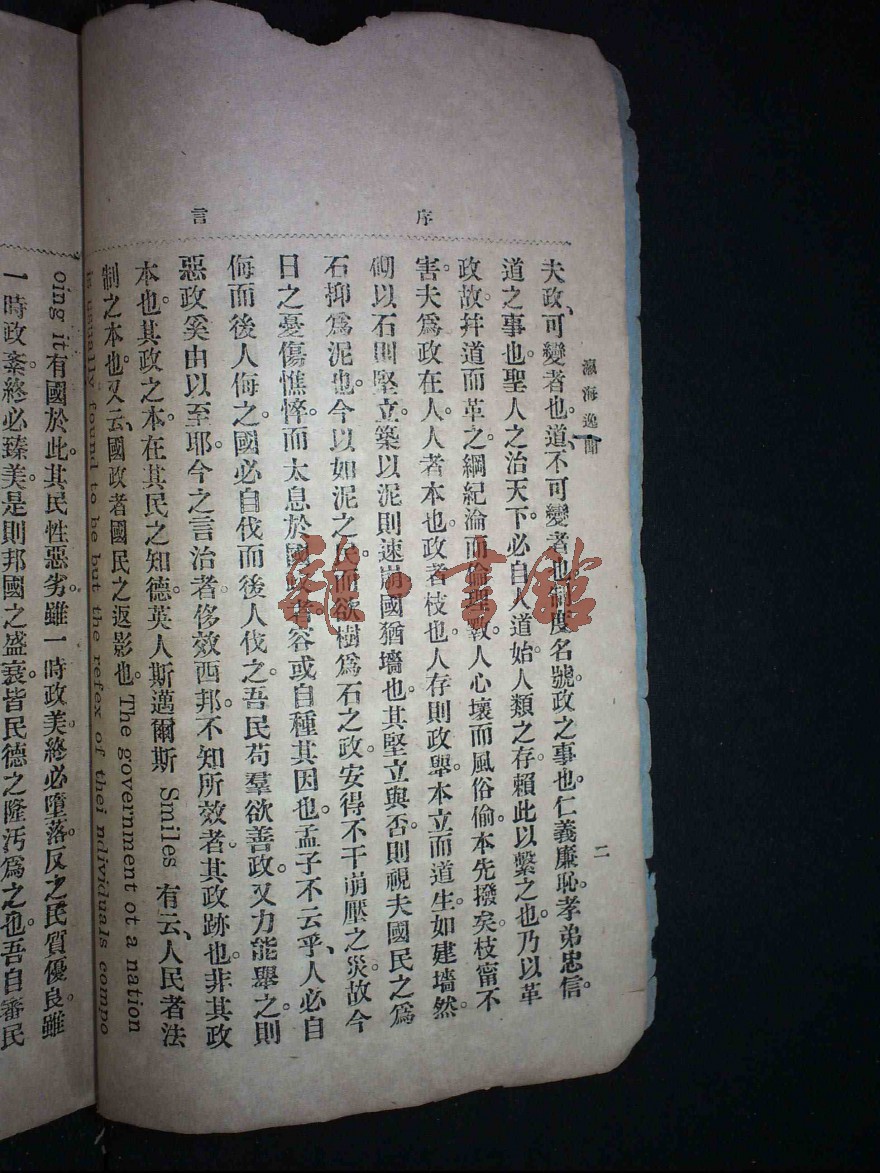 瀛海逸聞
二
序言
夫政、可變者也。道、不可變者也。制度名號。政之事也。仁義廉恥。孝弟忠信。
道之事也。聖人之治天下。必自人道始。人類之存。賴此以繫之也。乃以革
政。故并道而革之。綱紀淪而倫理斁。人心壞而風俗偷。本先撥矣。枝甯不
害。夫為政在人。人者本也。政者枝也。人存則政舉。本立而道生。如建墻然。
砌以石則堅立。築以泥則速崩。國猶墻也。其堅立與否。則視夫國民之為
石抑為泥也。今以如泥之民。而欲樹為石之政。安得不干崩壓之災。故今
日之憂傷憔悴。而太息於國以者。容或自種其因也。孟子不云乎、人必自
侮而後人侮之。國必自伐而後人伐之。吾民苟羣欲善政。又力能舉之。則
惡政奚由以至耶。今之言治者。侈效西邦。不知所效者。其政跡也。非其政
本也。其政之本。在其民之知德。英人斯邁爾斯 Smiles 有云、人民者法
制之本也。又云、國政者國民之返影也。The government ot a nation
is usually found to be but the refex of thei ndividuals compo
oing it 有國於此。其民性惡劣。雖一時政美。終必墮落。反之民質優良。雖
一時政紊。終必臻美。是則邦國之盛衰。皆民德之隆污為之也。吾自審民
雅書館